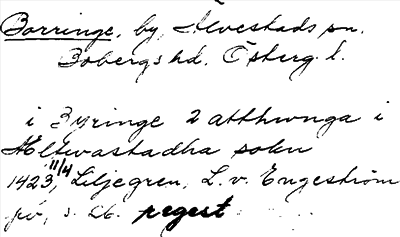 Borringe, by, Alvestads sn.
Bobergs hd. Östergl.
i Byringe 2 atthunga i
Alewastadha sokn
1423 11/4, Liljegren, L. v. Engeström
på, s. 26. regest